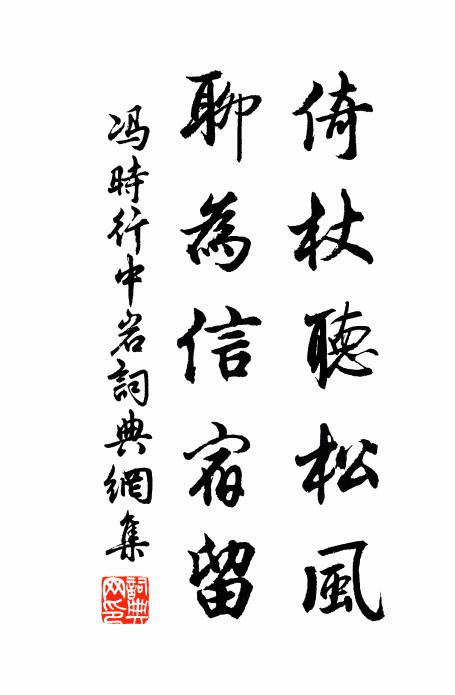 倚杖聽松風
聊為信宿留
冯時行中岩詞典網集
詞典網印